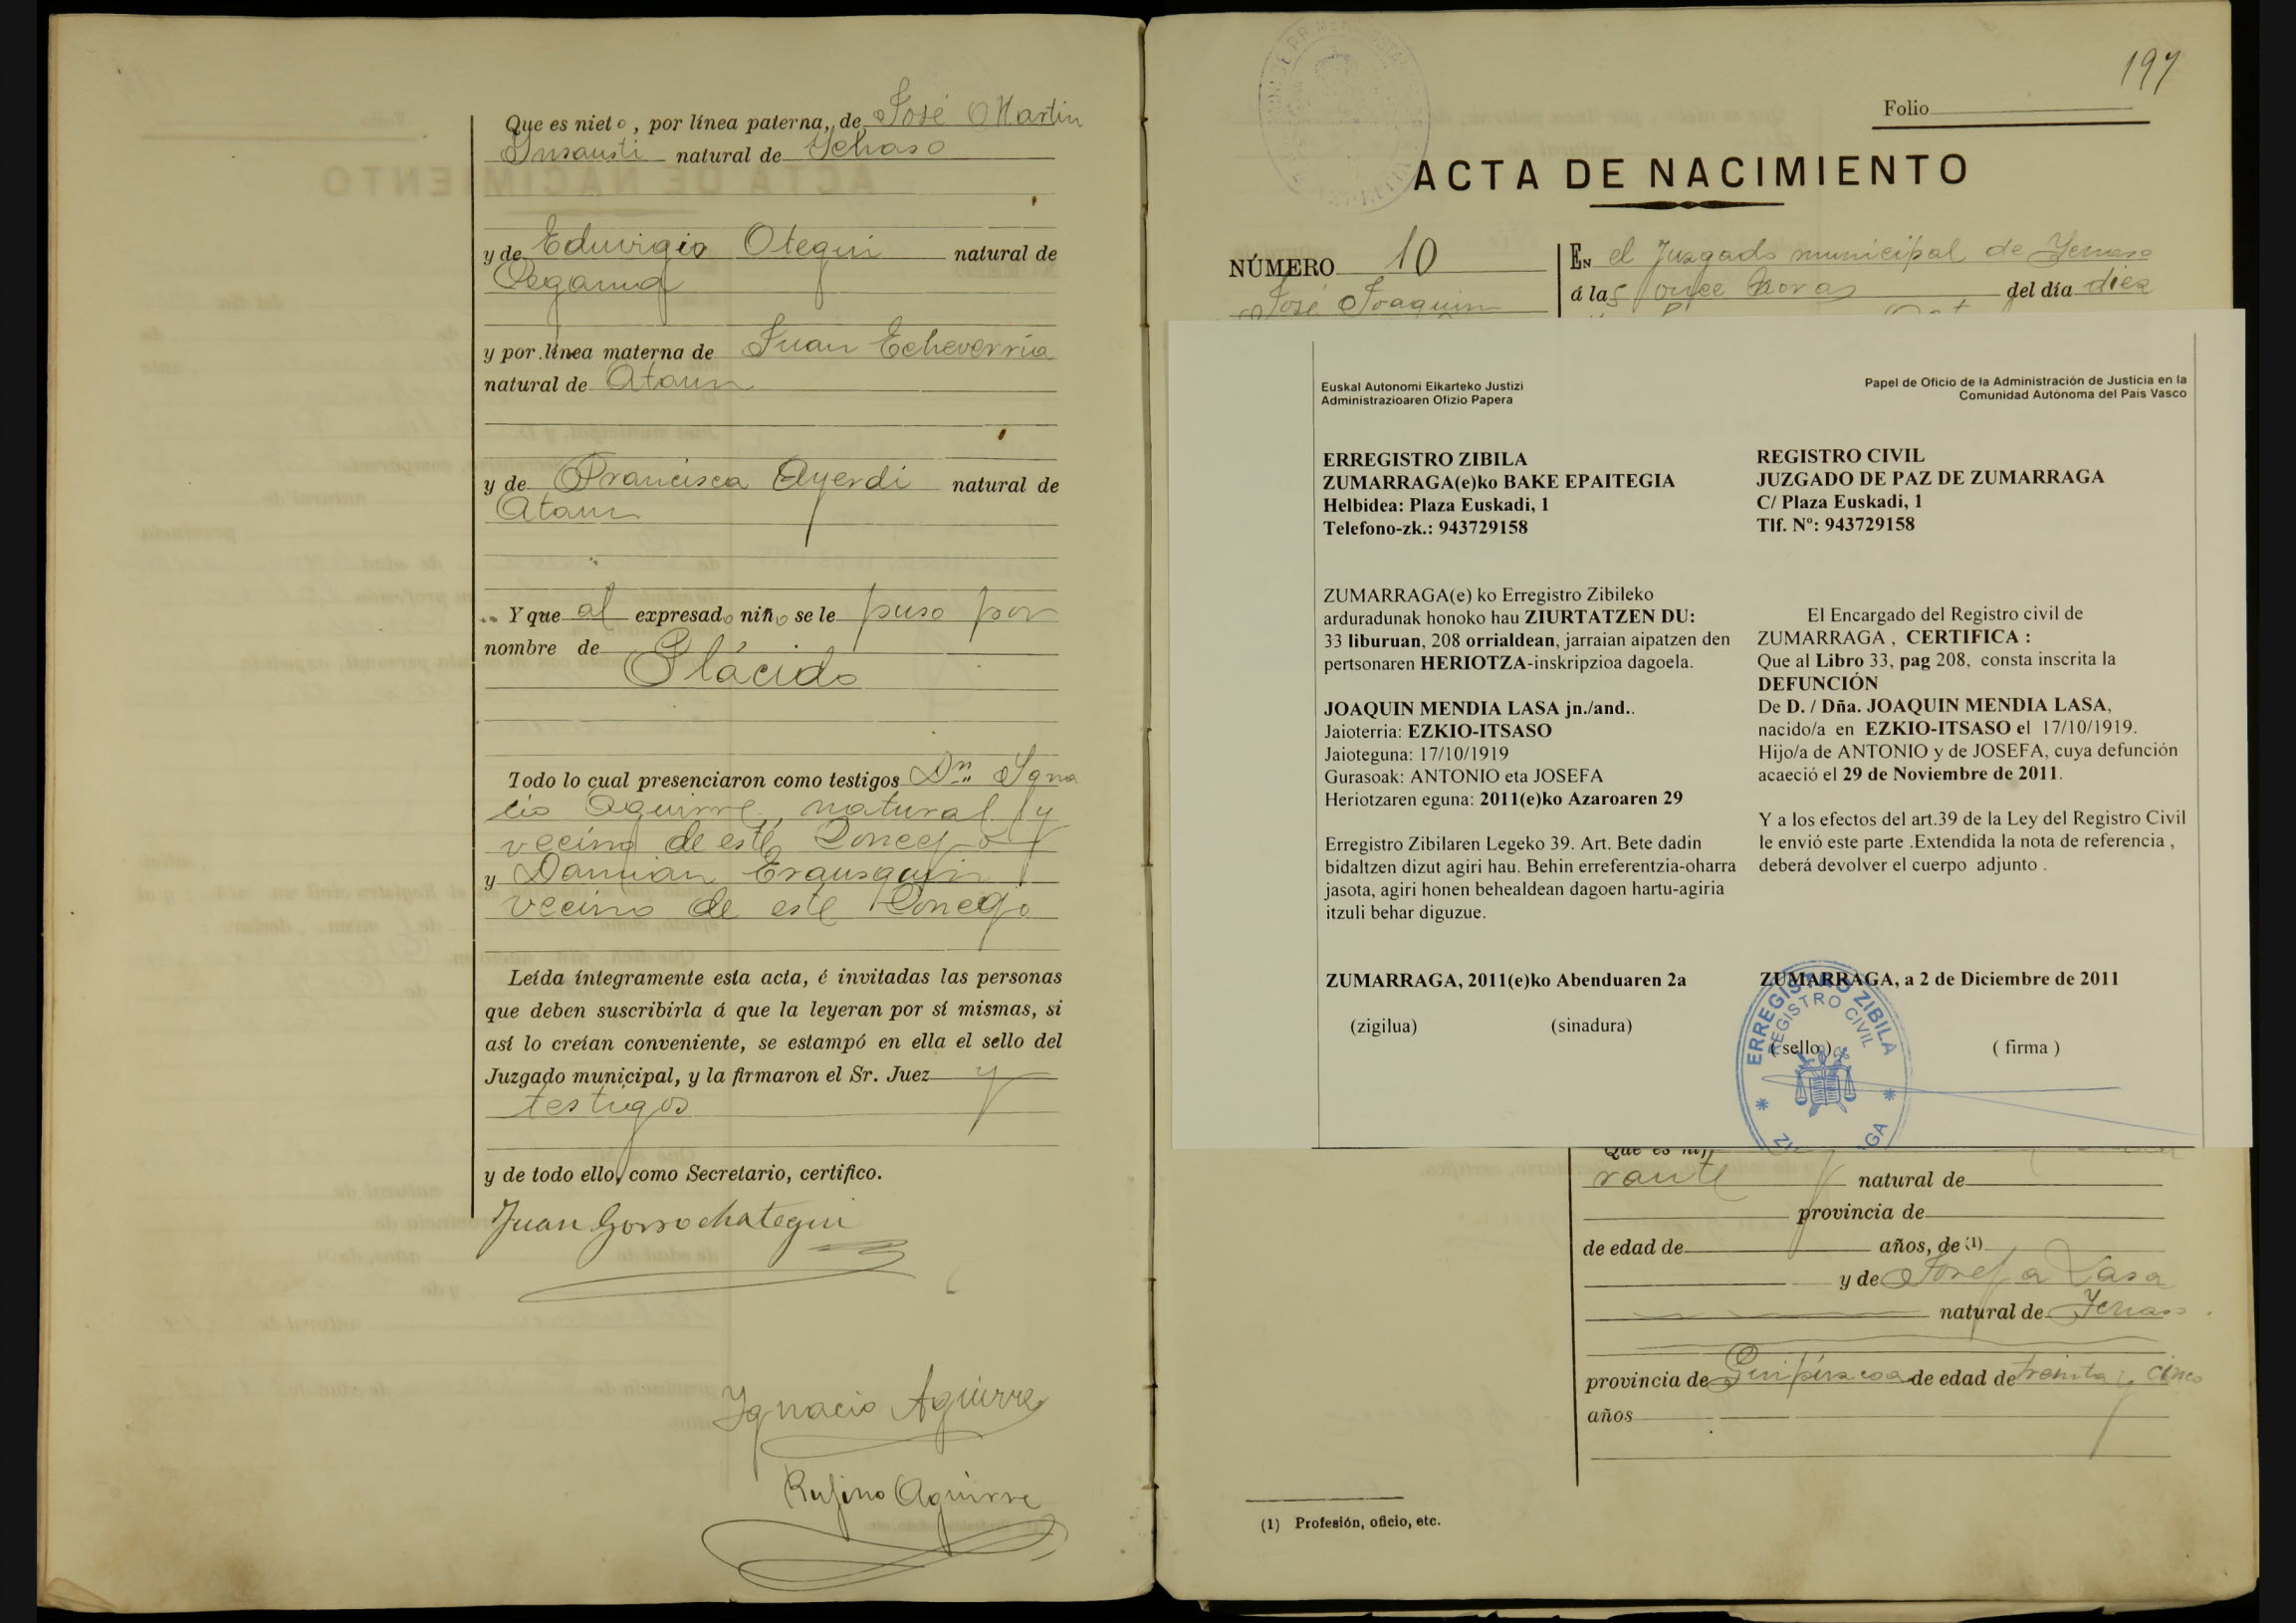 Que es nieto, por línea paterna, de José Martin
Insausti natural de Ychaso
y de Eduvigis Otegui natural de
Cegama
y por línea materna de Juan Echeverría
natural de Ataun
y de Francisca Ayerdi natural de
Ataun
Y que al expresado niño se le puso por
nombre de
Plácido
Todo lo cual presenciaron como testigos Dn. Igna
cio Aguirre, natural y
vecino de este Concejo
y Damian Erausquin
vecino de este Concejo
Leída íntegramente esta acta, é invitadas las personas
que deben suscribirla á que la leyeran por sí mismas, si
así lo creían conveniente, se estampó en ella el sello del
Juzgado municipal, y la firmaron el Sr. Juez y
testigos
y de todo ello, como Secretario, certifico.
Juan Gorrochategui
Ignacio Aguirre
Rufino Aguirre
197
Folio
ACTA DE NACIMIENTO
NÚMERO 10
José Joaquin
EN el Juzgado municipal de Ychaso
á las once horas del día diez
Euskal Autonomi Elkarteko Justizi
Administrazioaren Ofizio Papera
Papel de Oficio de la Administración de Justicia en la
Comunidad Autónoma del País Vasco
ERREGISTRO ZIBILA
ZUMARRAGA(e)ko BAKE EPAITEGIA
Helbidea: Plaza Euskadi, 1
Telefono-zk.: 943729158
REGISTRO CIVIL
JUZGADO DE PAZ DE ZUMARRAGA
C/ Plaza Euskadi, 1
Tlf. Nº: 943729158
ZUMARRAGA(e) ko Erregistro Zibileko
arduradunak honoko hau ZIURTATZEN DU:
33 liburuan, 208 orrialdean, jarraian aipatzen den
pertsonaren HERIOTZA-inskripzioa dagoela.
JOAQUIN MENDIA LASA jn./and..
Jaioterria: EZKIO-ITSASO
Jaioteguna: 17/10/1919
Gurasoak: ANTONIO eta JOSEFA
Heriotzaren eguna: 2011(e)ko Azaroaren 29
Erregistro Zibilaren Legeko 39. Art. Bete dadin
bidaltzen dizut agiri hau. Behin erreferentzia-oharra
jasota, agiri honen behealdean dagoen hartu-agiria
itzuli behar diguzue.
ZUMARRAGA, 2011(e)ko Abenduaren 2a
(zigilua) (sinadura)
El Encargado del Registro civil de
ZUMARRAGA , CERTIFICA :
Que al Libro 33, pag 208, consta inscrita la
DEFUNCIÓN
De D. / Dña. JOAQUIN MENDIA LASA,
nacido/a en EZKIO-ITSASO el 17/10/1919.
Hijo/a de ANTONIO y de JOSEFA, cuya defunción
acaeció el 29 de Noviembre de 2011.
Y a los efectos del art.39 de la Ley del Registro Civil
le envió este parte .Extendida la nota de referencia ,
deberá devolver el cuerpo adjunto .
ZUMARRAGA, a 2 de Diciembre de 2011
( sello ) ( firma )
ERREGISTRO ZIBILA
REGISTRO CIVIL
rante natural de
provincia de
de edad de años, de (1)
y de Josefa Lasa
natural de Ychaso
provincia de Guipúzcoa de edad de treinta y cinco
años
(1) Profesión, oficio, etc.